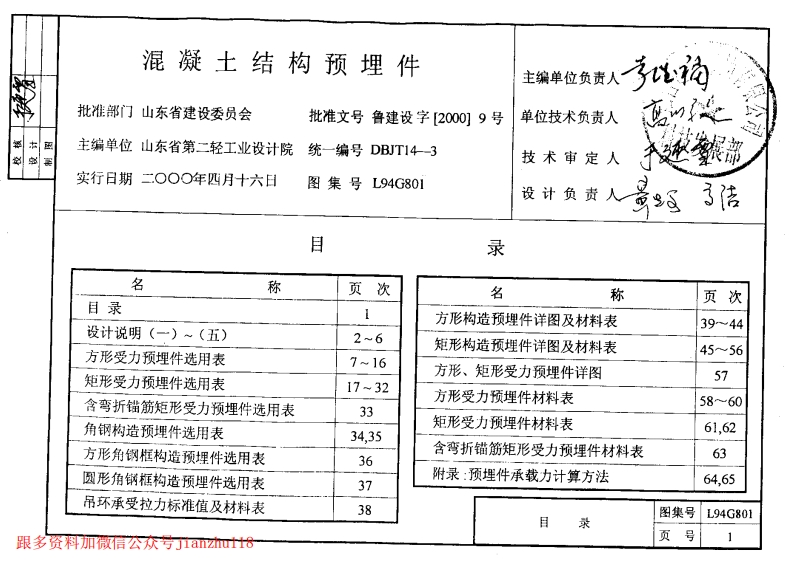 混凝土结构预埋件
批准部门 山东省建设委员会 批准文号 鲁建设字[2000]9号
主编单位 山东省第二轻工业设计院 统一编号 DBJT14—3
实行日期 二〇〇〇年四月十六日 图集号 L94G801
主编单位负责人
单位技术负责人
技术审定人
设计负责人
校核
设计
制图
目 录
名 称 页 次
目 录 1
设计说明(一)~(五) 2~6
方形受力预埋件选用表 7~16
矩形受力预埋件选用表 17~32
含弯折锚筋矩形受力预埋件选用表 33
角钢构造预埋件选用表 34,35
方形角钢框构造预埋件选用表 36
圆形角钢框构造预埋件选用表 37
吊环承受拉力标准值及材料表 38
名 称 页 次
方形构造预埋件详图及材料表 39~44
矩形构造预埋件详图及材料表 45~56
方形、矩形受力预埋件详图 57
方形受力预埋件材料表 58~60
矩形受力预埋件材料表 61,62
含弯折锚筋矩形受力预埋件材料表 63
附录:预埋件承载力计算方法 64,65
目 录
图集号 L94G801
页 号 1
跟多资料加微信公众号jianzhu118